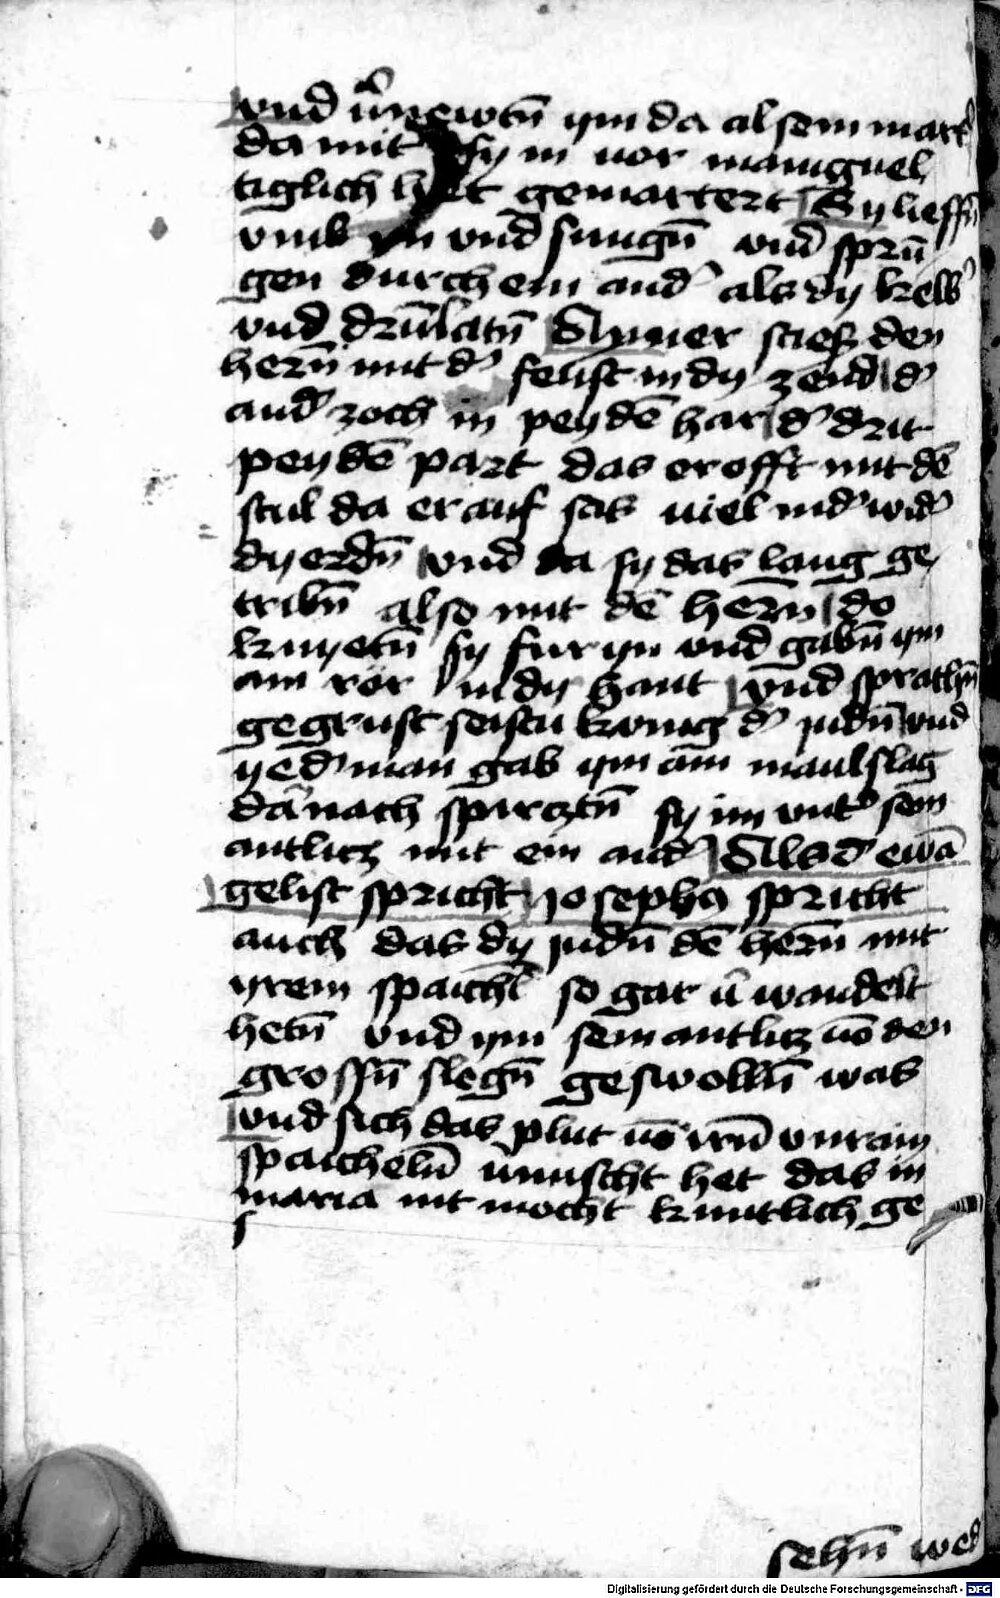 vnd v̄newtn̄ ym da al sein mart̓
da mit sy in uor maniguel
tiglich het gemartert Sy lieffn̄
vmb yn vnd sungn̄ vnd sprū
gen durch ein and̓ als dy kelb̓
vnd drūlatn̄ Ayner sties den
hern̄ mit d̓ feust in dy zend d̓
and̓ zoch in pey dē har d̓ drit
pey dē part das er offt mit dē
stul da er auf sas uiel nid̓ wid̓
dy erdn̄ vnd da sy das lang ge
tribn̄ also mit dē hern̄ do
knyetn̄ sy fur yn vnd gabn̄ ym
ain ror in dy hant vnd sprachn̄
gegrust seistu konig d̓ judn̄ vnd
yed̓ man gab ym ain maulslag
dārnach spircztn̄ sy im vnt̓ sein
antlitz mit ein and̓ Als d̓ ewā
gelist spricht Josephus spricht
auch das dy judn̄ dē hern̄ mit
yrem spaichl̄ so gar v̄wandelt
hetn̄ vnd ym sein antlitz uō den
grossn̄ slegn̄ geswolln̄ was
vnd sich das plut uō irn̄ vnrain
spaicheln̄ v̄muscht het das in
maria nit mocht kuntlich ge
sehn̄ wed
Digitalisierung gefördert durch die Deutsche Forschungsgemeinschaft - DFG